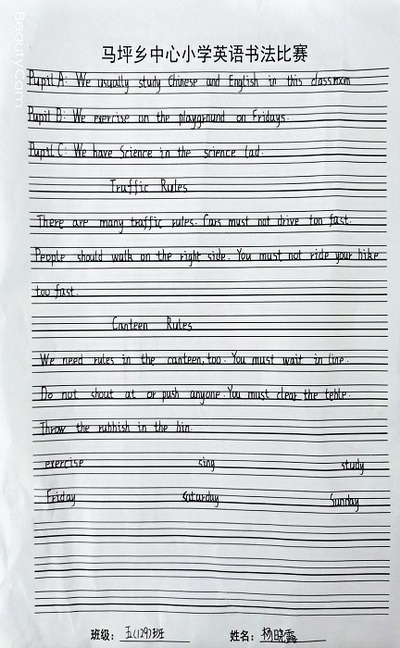 Beauty Cam
马坪乡中心小学英语书法比赛
Pupil A: We usually study Chinese and English in this classroom
Pupil B: We exercise on the playground on Fridays.
Pupil C: We have Science in the science lad.
Traffic Rules
There are many traffic rules. Cars must not drive too fast.
People should walk on the right side. You must not ride your bike
too fast.
Canteen Rules
We need rules in the canteen, too. You must wait in line.
Do not shout at or push anyone. You must clear the table.
Throw the rubbish in the bin.
exercise sing study
Friday Saturday Sunday
班级: 五(129)班 姓名: 杨晓露